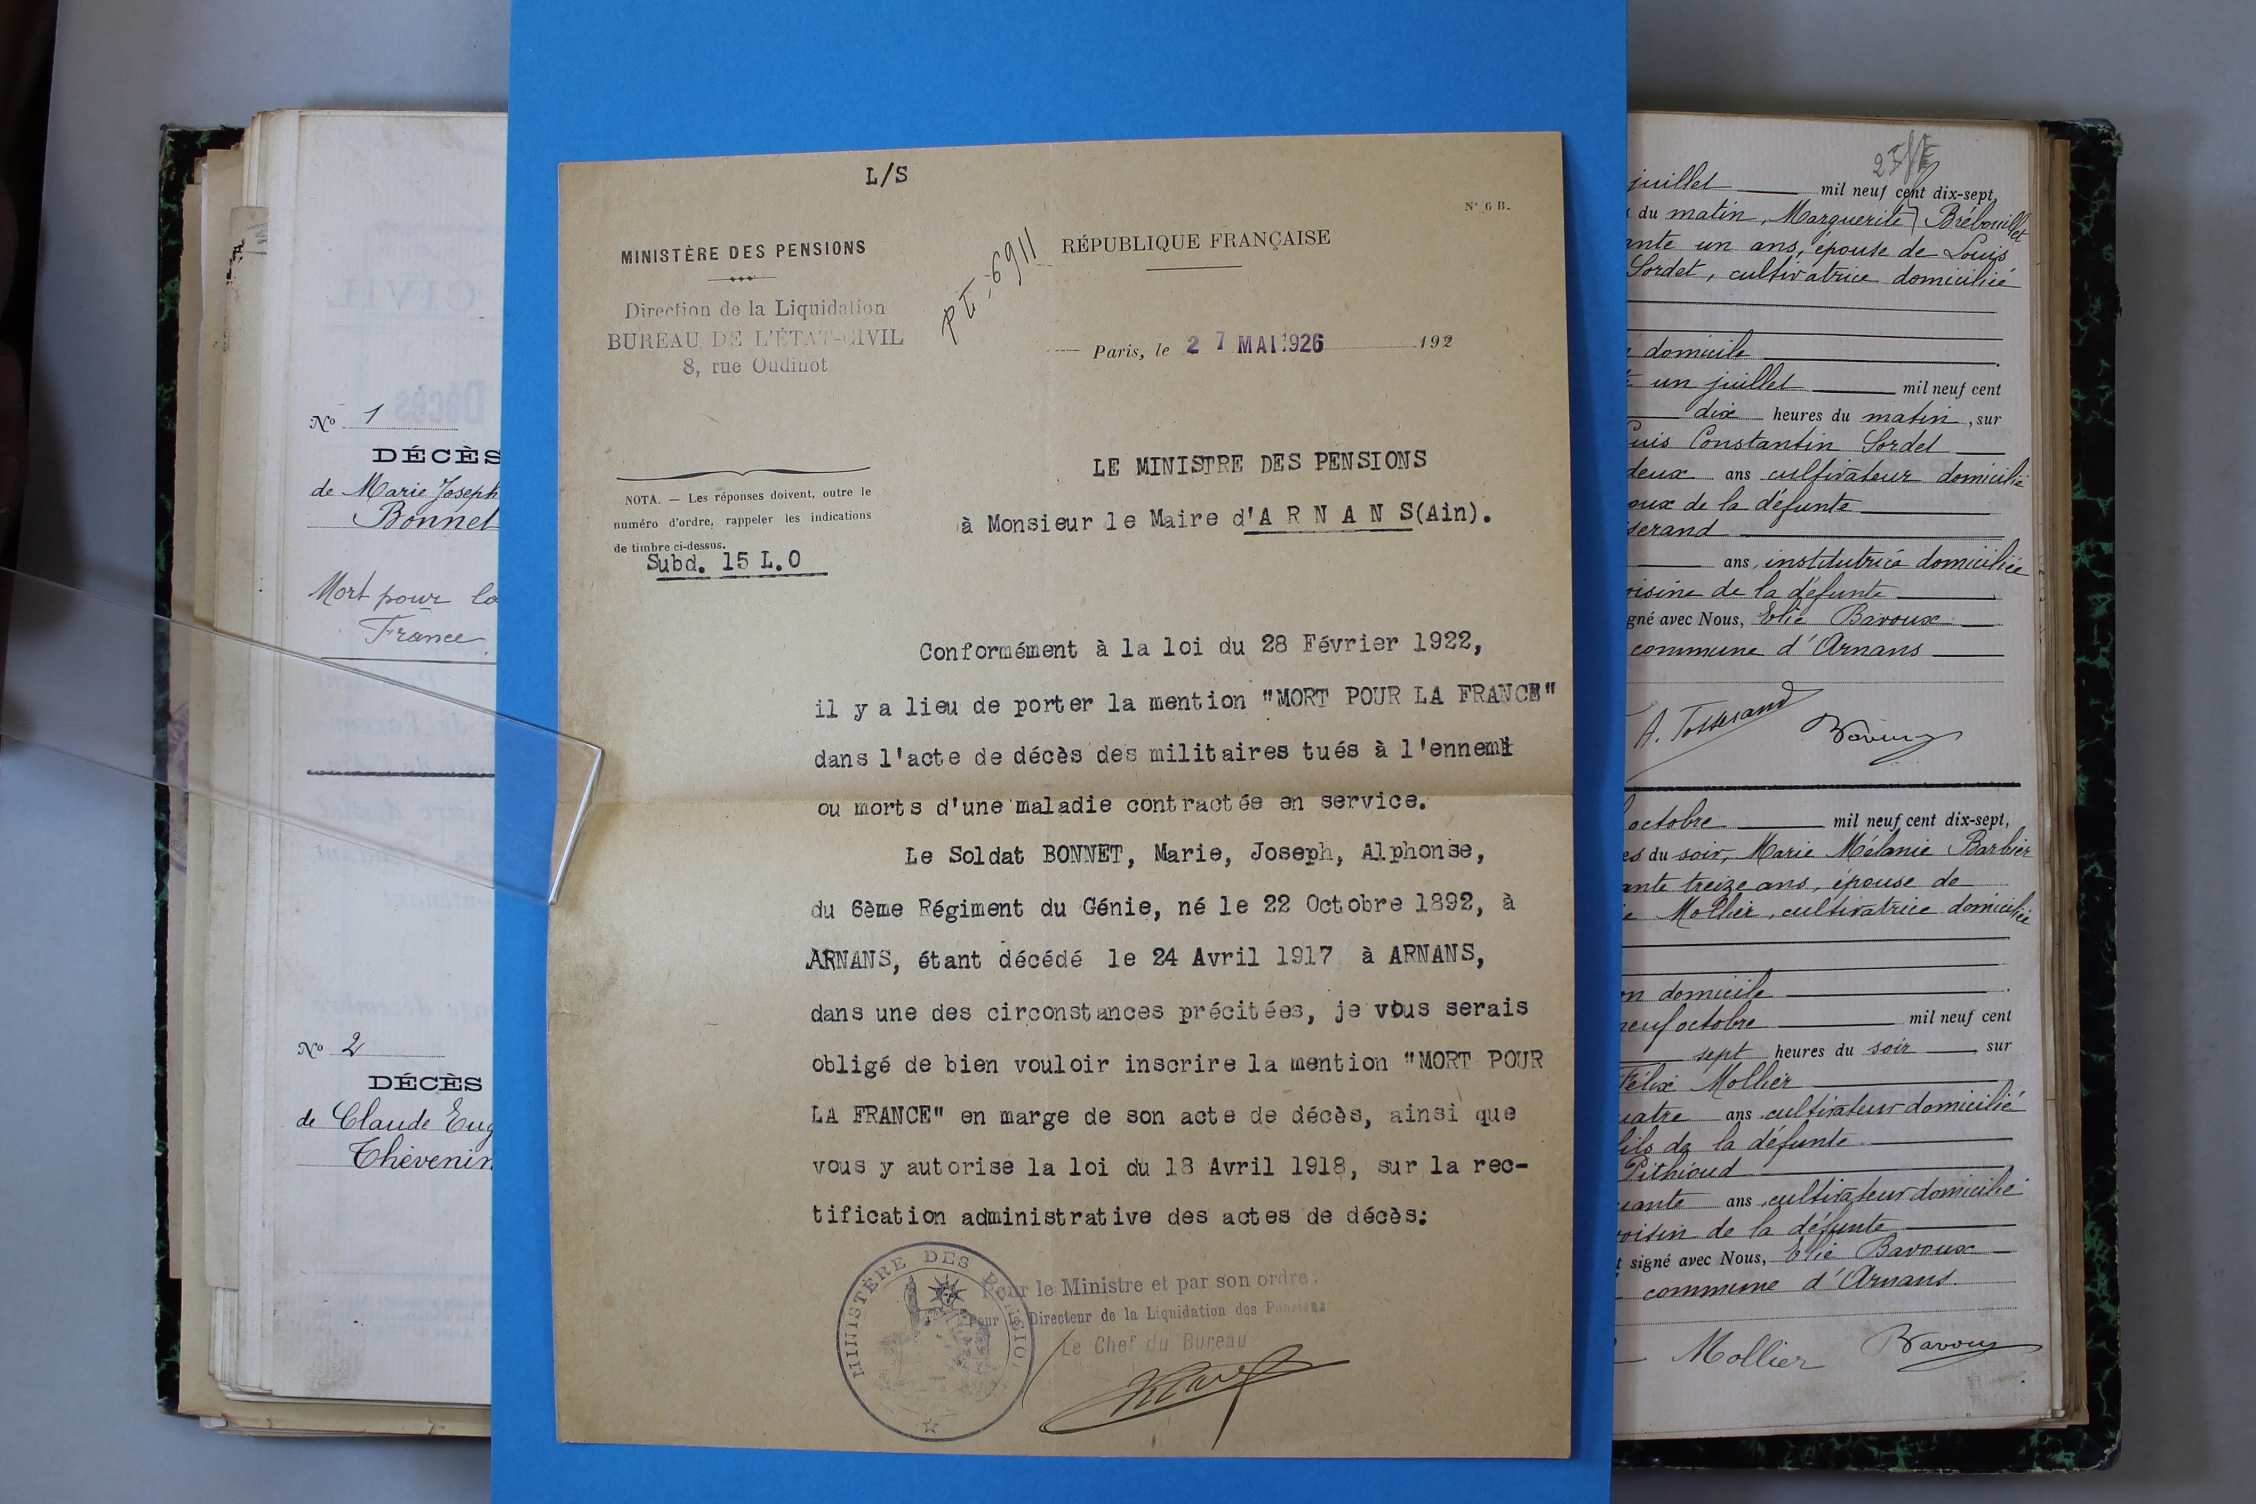 N° 1
DÉCÈS
de Marie Joseph
Bonnet
Mort pour la
France.
N° 2
DÉCÈS
de Claude Eug
Thévenin
L/S
N° 6 B.
MINISTÈRE DES PENSIONS
Direction de la Liquidation
BUREAU DE L'ÉTAT-CIVIL
8, rue Oudinot
6911
RÉPUBLIQUE FRANÇAISE
Paris, le 27 MAI 1926 192
NOTA. — Les réponses doivent, outre le
numéro d'ordre, rappeler les indications
de timbre ci-dessus.
Subd. 15 L.O
LE MINISTRE DES PENSIONS
à Monsieur le Maire d'A R N A N S(Ain).
Conformément à la loi du 28 Février 1922,
il y a lieu de porter la mention "MORT POUR LA FRANCE"
dans l'acte de décès des militaires tués à l'ennemi
ou morts d'une maladie contractée en service.
Le Soldat BONNET, Marie, Joseph, Alphonse,
du 6ème Régiment du Génie, né le 22 Octobre 1892, à
ARNANS, étant décédé le 24 Avril 1917 à ARNANS,
dans une des circonstances précitées, je vous serais
obligé de bien vouloir inscrire la mention "MORT POUR
LA FRANCE" en marge de son acte de décès, ainsi que
vous y autorise la loi du 18 Avril 1918, sur la rec-
tification administrative des actes de décès:
MINISTÈRE DES PENSIO
Pour le Ministre et par son ordre:
Pour le Directeur de la Liquidation des Pensions
Le Chef du Bureau
juillet mil neuf cent dix-sept,
du matin, Marguerite Brébouillet
ante un ans, épouse de Louis
Sordet, cultivatrice domicilié
domicile
un juillet mil neuf cent
dix heures du matin, sur
ouis Constantin Sordet
deux ans cultivateur domicilié
oux de la défunte
serand
ans, institutrice domiciliée
oisine de la défunte
gné avec Nous, Elie Bavoux
commune d'Arnans
A. Tosserand Bavoux
octobre mil neuf cent dix-sept,
es du soir, Marie Mélanie Barbier
ante treize ans, épouse de
Mollier, cultivatrice domiciliée
on domicile
neuf octobre mil neuf cent
sept heures du soir sur
Félix Mollier
uatre ans cultivateur domicilié
fils de la défunte
Pithioud
uante ans cultivateur domicilié
voisin de la défunte
t signé avec Nous, Elie Bavoux
commune d'Arnans.
Mollier Bavoux